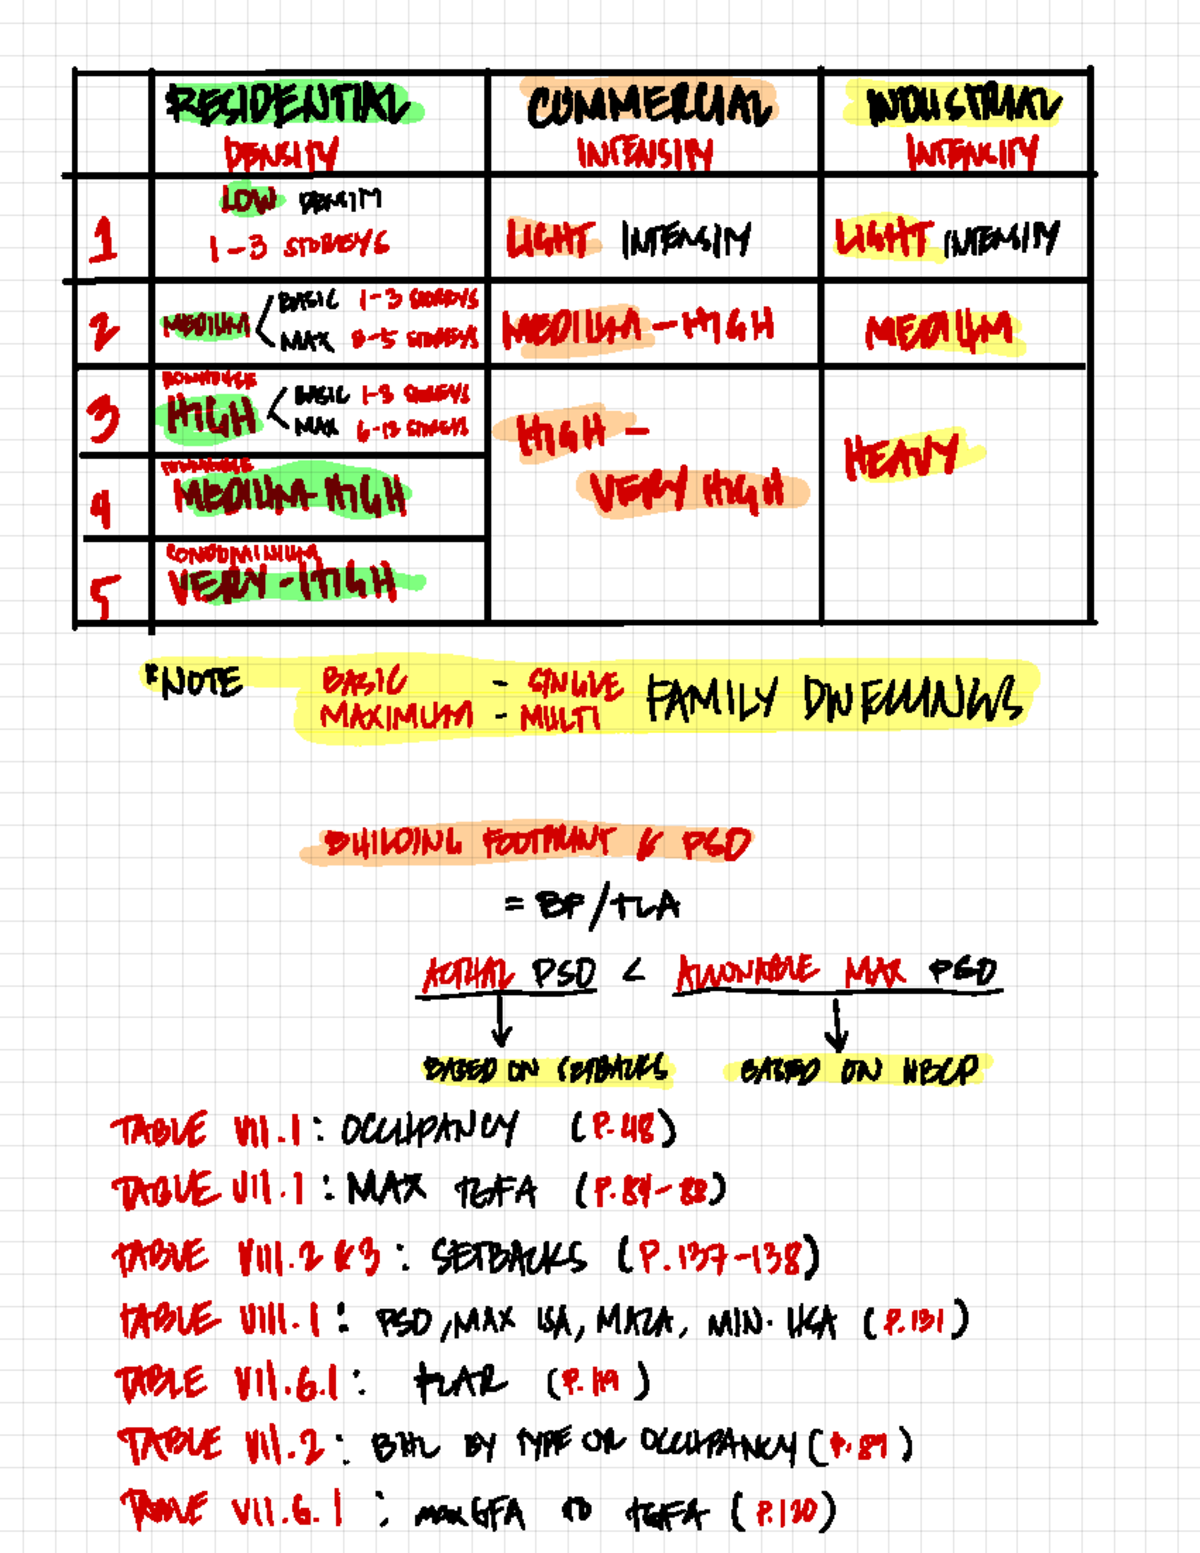 RESIDENTIAL COMMERCIAL INDUSTRIAL
DENSITY INTENSITY INTENSITY
LOW DENSITY
1 1-3 STOREYS LIGHT INTENSITY LIGHT INTENSITY
2 MEDIUM BASIC 1-3 STOREYS MEDIUM-HIGH MEDIUM
MAX STOREYS
ROWHOUSE
3 HIGH BASIC 1-3 STOREYS HIGH - HEAVY
MAX 6-12 STOREYS
4 MEDIUM-HIGH VERY HIGH
CONDOMINIUM
5 VERY-HIGH
*NOTE BASIC - SINGLE FAMILY DWELLINGS
MAXIMUM - MULTI
BUILDING FOOTPRINT & PSO
= BF/TLA
ACTUAL PSO < ALLOWABLE MAX PSO
BASED ON SETBACKS BASED ON NBCP
TABLE VII.1: OCCUPANCY (P.48)
TABLE VII.1: MAX TGFA (P.84-88)
TABLE VIII.2 &3: SETBACKS (P.137-138)
TABLE VIII.1: PSO, MAX ISA, MIN. USA (P.131)
TABLE VII.6.1: FLAR (P.119)
TABLE VII.2: BHL BY TYPE OR OCCUPANCY (P.89)
TABLE VII.6.1: max GFA TO TGFA (P.120)